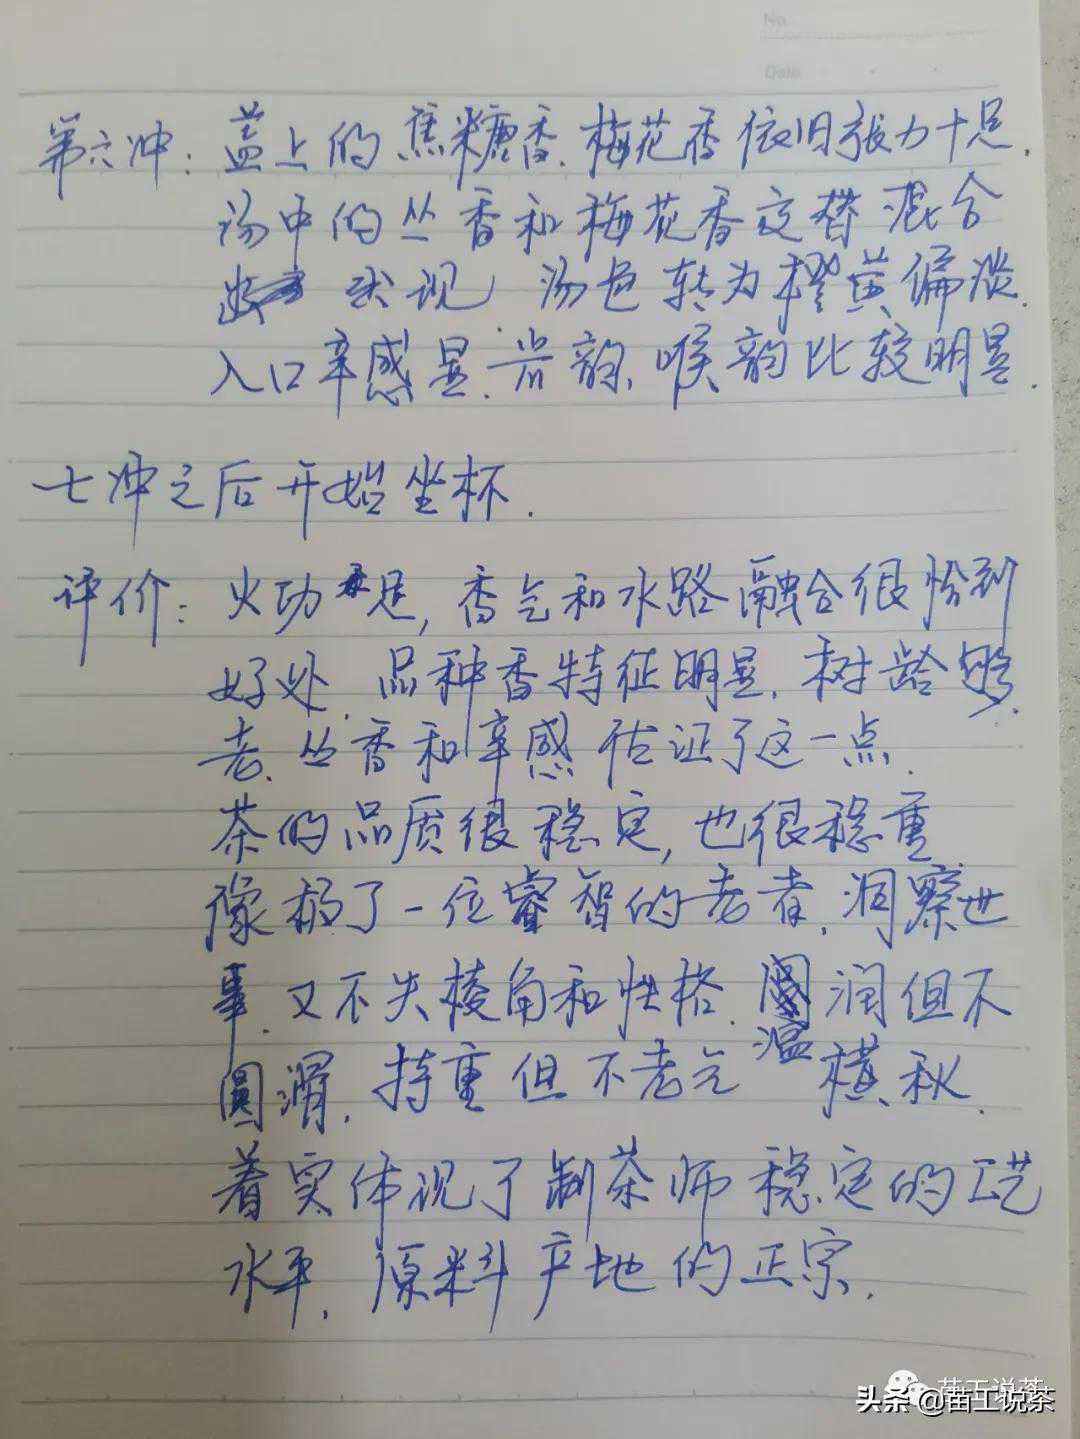 No.
Date
第六冲：盖上的焦糖香.梅花香依旧张力十足.
汤中的丛香和梅花香交替混合
出现 汤色转为橙黄偏淡.
入口辛感显.岩韵、喉韵比较明显.
七冲之后开始坐杯.
评价：火功足,香气和水路融合很恰到
好处.品种香特征明显.树龄够
老.丛香和辛感佐证了这一点.
茶的品质很稳定,也很稳重
像极了一位睿智的老者.洞察世
事.又不失棱角和性格.温润但不
圆滑.持重但不老气横秋.
着实体现了制茶师稳定的工艺
水平.原料产地的正宗.
苗工说茶
头条@苗工说茶